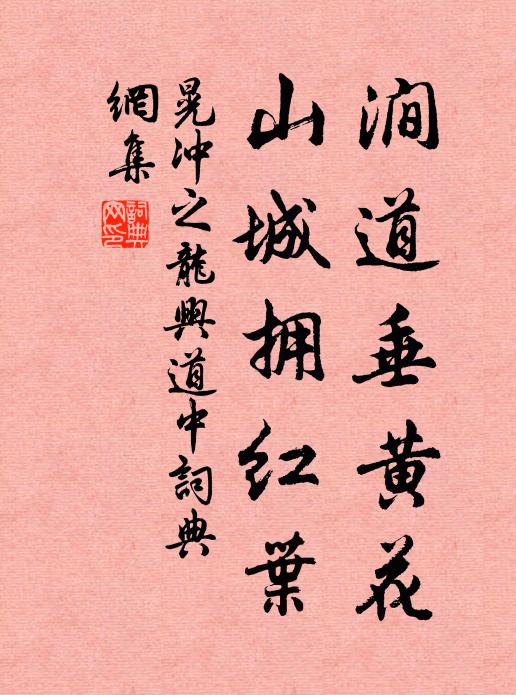 澗道垂黄花
山城拥红葉
晁冲之龍興道中詞典
網集
詞典網印